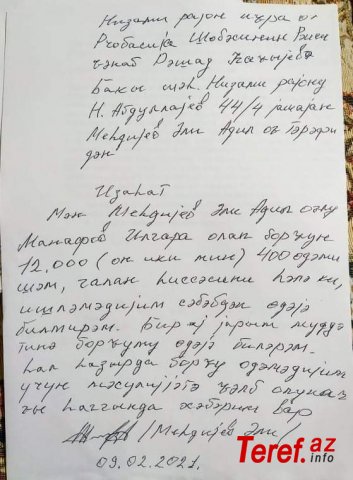 Низами рајон иҹра
Пробасија Шөбәсинин Рәиси
ҹәнаб Рәшад
Бакы шәһ. Низами рајону
Н. Абдуллајев 44/4 јашајан
Меһдијев Әли Адил оғ тәрәфин
дән
Изаһат
Мән Меһдијев Әли Адил оғлу
Манафов Илгара олан борҹун
12,000 (он ики мин) 400 өдәми
шәм, галан һиссәсини һәлә ки,
ишләмәдијим сәбәбдән өдәјә
билмирәм. Бир ај јарым мүддә
тинә борҹуму өдәјә биләрәм.
һал һазырда борҹу өдәмәдијим
үчүн мәсулијјәтә ҹәлб олунаҹа
ғы һаггында хәбәрим вар
/Меһдијев Әли/
09.02.2021.
Teref.az
info